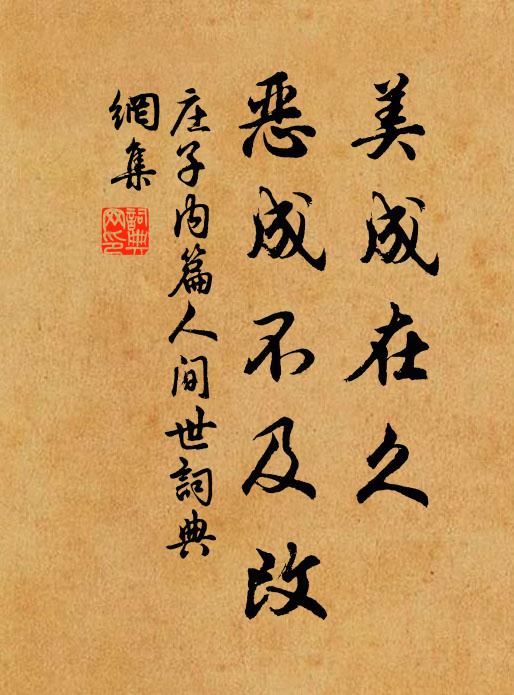 美成在久
恶成不及改
庄子内篇人间世詞典
網集
詞典
网印